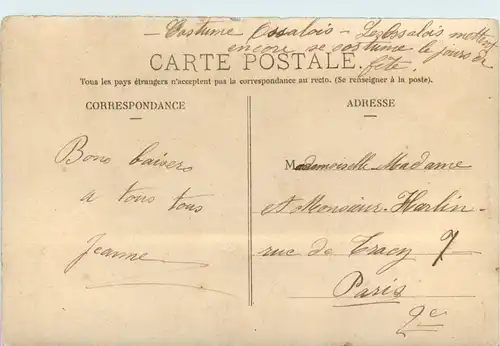 - Costume Ossalois - Les Ossalois mettent
encore se costume le jours de
fête.
CARTE POSTALE
Tous les pays étrangers n'acceptent pas la correspondance au recto. (Se renseigner à la poste).
CORRESPONDANCE
Bons baisers
a tous tous
Jeanne
ADRESSE
Mademoiselle Madame
et Monsieur Harlin
rue de Tracy 7
Paris
2e